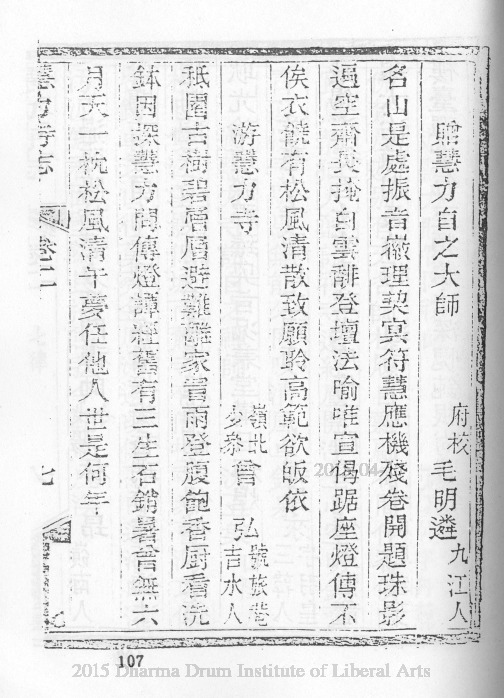 贈慧力自之大師 府校 毛明遴 九江人
名山是處振音徽理契冥符慧應機殘卷開題珠影
逼空齋長掩白雲霏登壇法喻唯宣偈踞座燈傳不
俟衣饒有松風清散致願聆高範欲皈依
游慧力寺 嶺北少參 曾弘 號旅菴 吉水人
祇園古樹碧層層避難離家冒雨登腹飽香厨看洗
鉢因探慧力問傳燈譚經舊有三生石銷暑曾無六
月天一枕松風清午夢任他人世是何年
慧力寺志 卷二 七
107
2015 Dharma Drum Institute of Liberal Arts